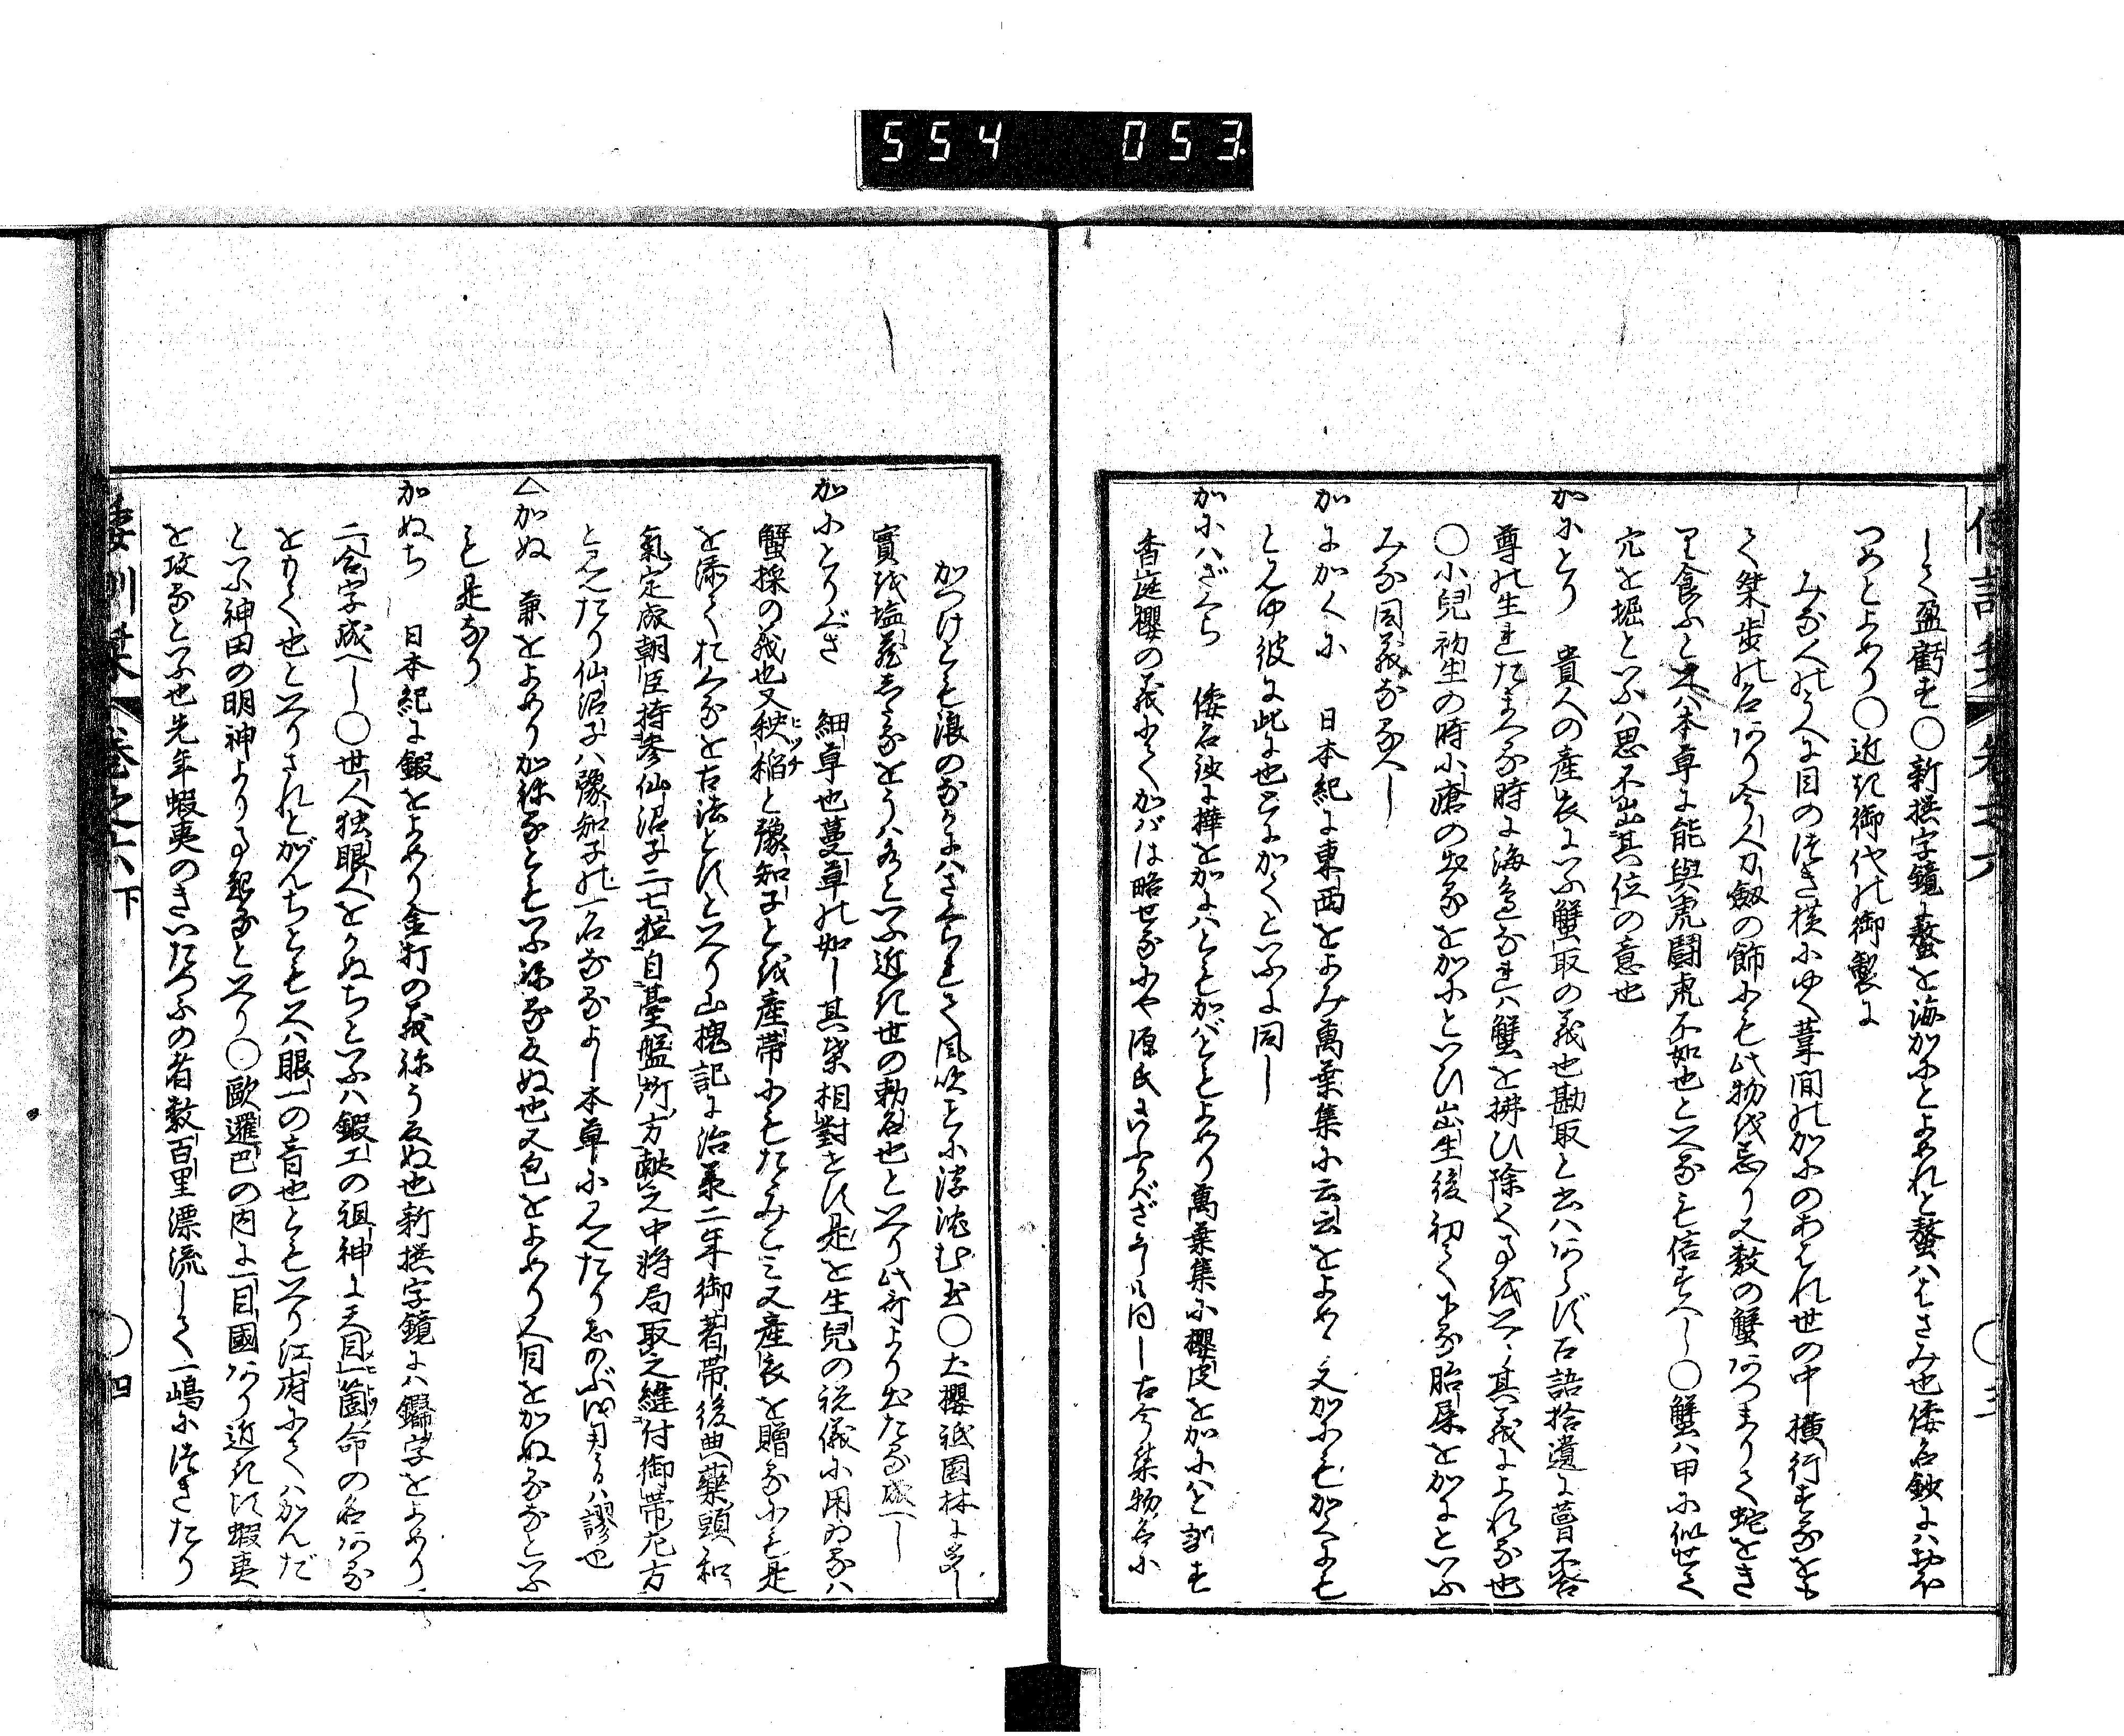 554 053
して盈虧す○新撰字鏡に螯を海かにとよめれと螯ハはさみ也倭名鈔にハおほ
つめとよめり○近き御代の御製に
みな人のうへに目のつき横にゆく葦間のかにのあはれ世の中 横行するをも
て桀歩の名あり今人刀劔の飾にも此物を忌り又数の蟹あつまりて蛇をき
り食ふと見ハ本草に能與虎闘虎不如也といへるも信すへし○蟹ハ甲に似せて
穴を堀といふハ思不出其位の意也
かにとり 貴人の産衣にいふ蟹取の義也勘取と書ハあらず古語拾遺に葺不合
尊の生れたまへる時に海邊なれハ蟹を拂ひ除くる事を其義によれる也
○小兒初生の時小瘡の出るをかにといひ出生後初て下る胎屎をかにといふ
みな同義なるへし
かにかくに 日本紀に東西をよみ萬葉集に云云をよめり又かにもかくにも
と見ゆ彼に此に也とにかくといふに同し
かにハざくら 倭名鈔に樺をかにハともかバともよめり萬葉集に櫻皮をかにハと訓す
香庭櫻の義にてかバは略せるにや源氏にいふかバざくら同し古今集物名に
かつけとも浪のなかにハさくられて風吹ことに浮沈む玉○大櫻祇園林に多し
實を塩蔵するをうハ名といふ近き世の勅名也といへり此哥より出たる成へし
かにとりぐさ 細草也蔓草の如し其葉相對とす是を生兒の祝儀に用ゐるハ
蟹採の義也又秧稲と豫知子とを産帯にもたゝみこミ又産衣を贈るにも是
を添てたくるを古法とすといへり山槐記に治承二年御着帯後典藥頭和
氣定成朝臣持參仙沼子二七粒自臺盤所方献之中将局取之縫付御帯左方
と見えたり仙沼子ハ豫知子の一名なるよし本草に見えたりしのぶを用るハ謬也
△かぬ 兼をよめりかねるともいふねる反ぬ也又包をよめり人目をかぬるなといふ
も是なり
かぬち 日本紀に鍛をよめり金打の義ねう反ぬ也新撰字鏡にハ鑡字をよめり
二合字成へし○世人独眼人をかぬちといふハ鍛工の祖神に天目一箇命の名ある
をもて也といへりされとがんちともいへハ眼一の音也ともいへり江府にてハがんだ
といふ神田の明神より事起るといへり○歐邏巴の内に一目國あり近きす蝦夷
を攻るといふ也先年蝦夷のさいたつふの者数百里漂流して一嶋につきたり
倭訓栞 巻之六下 ○四